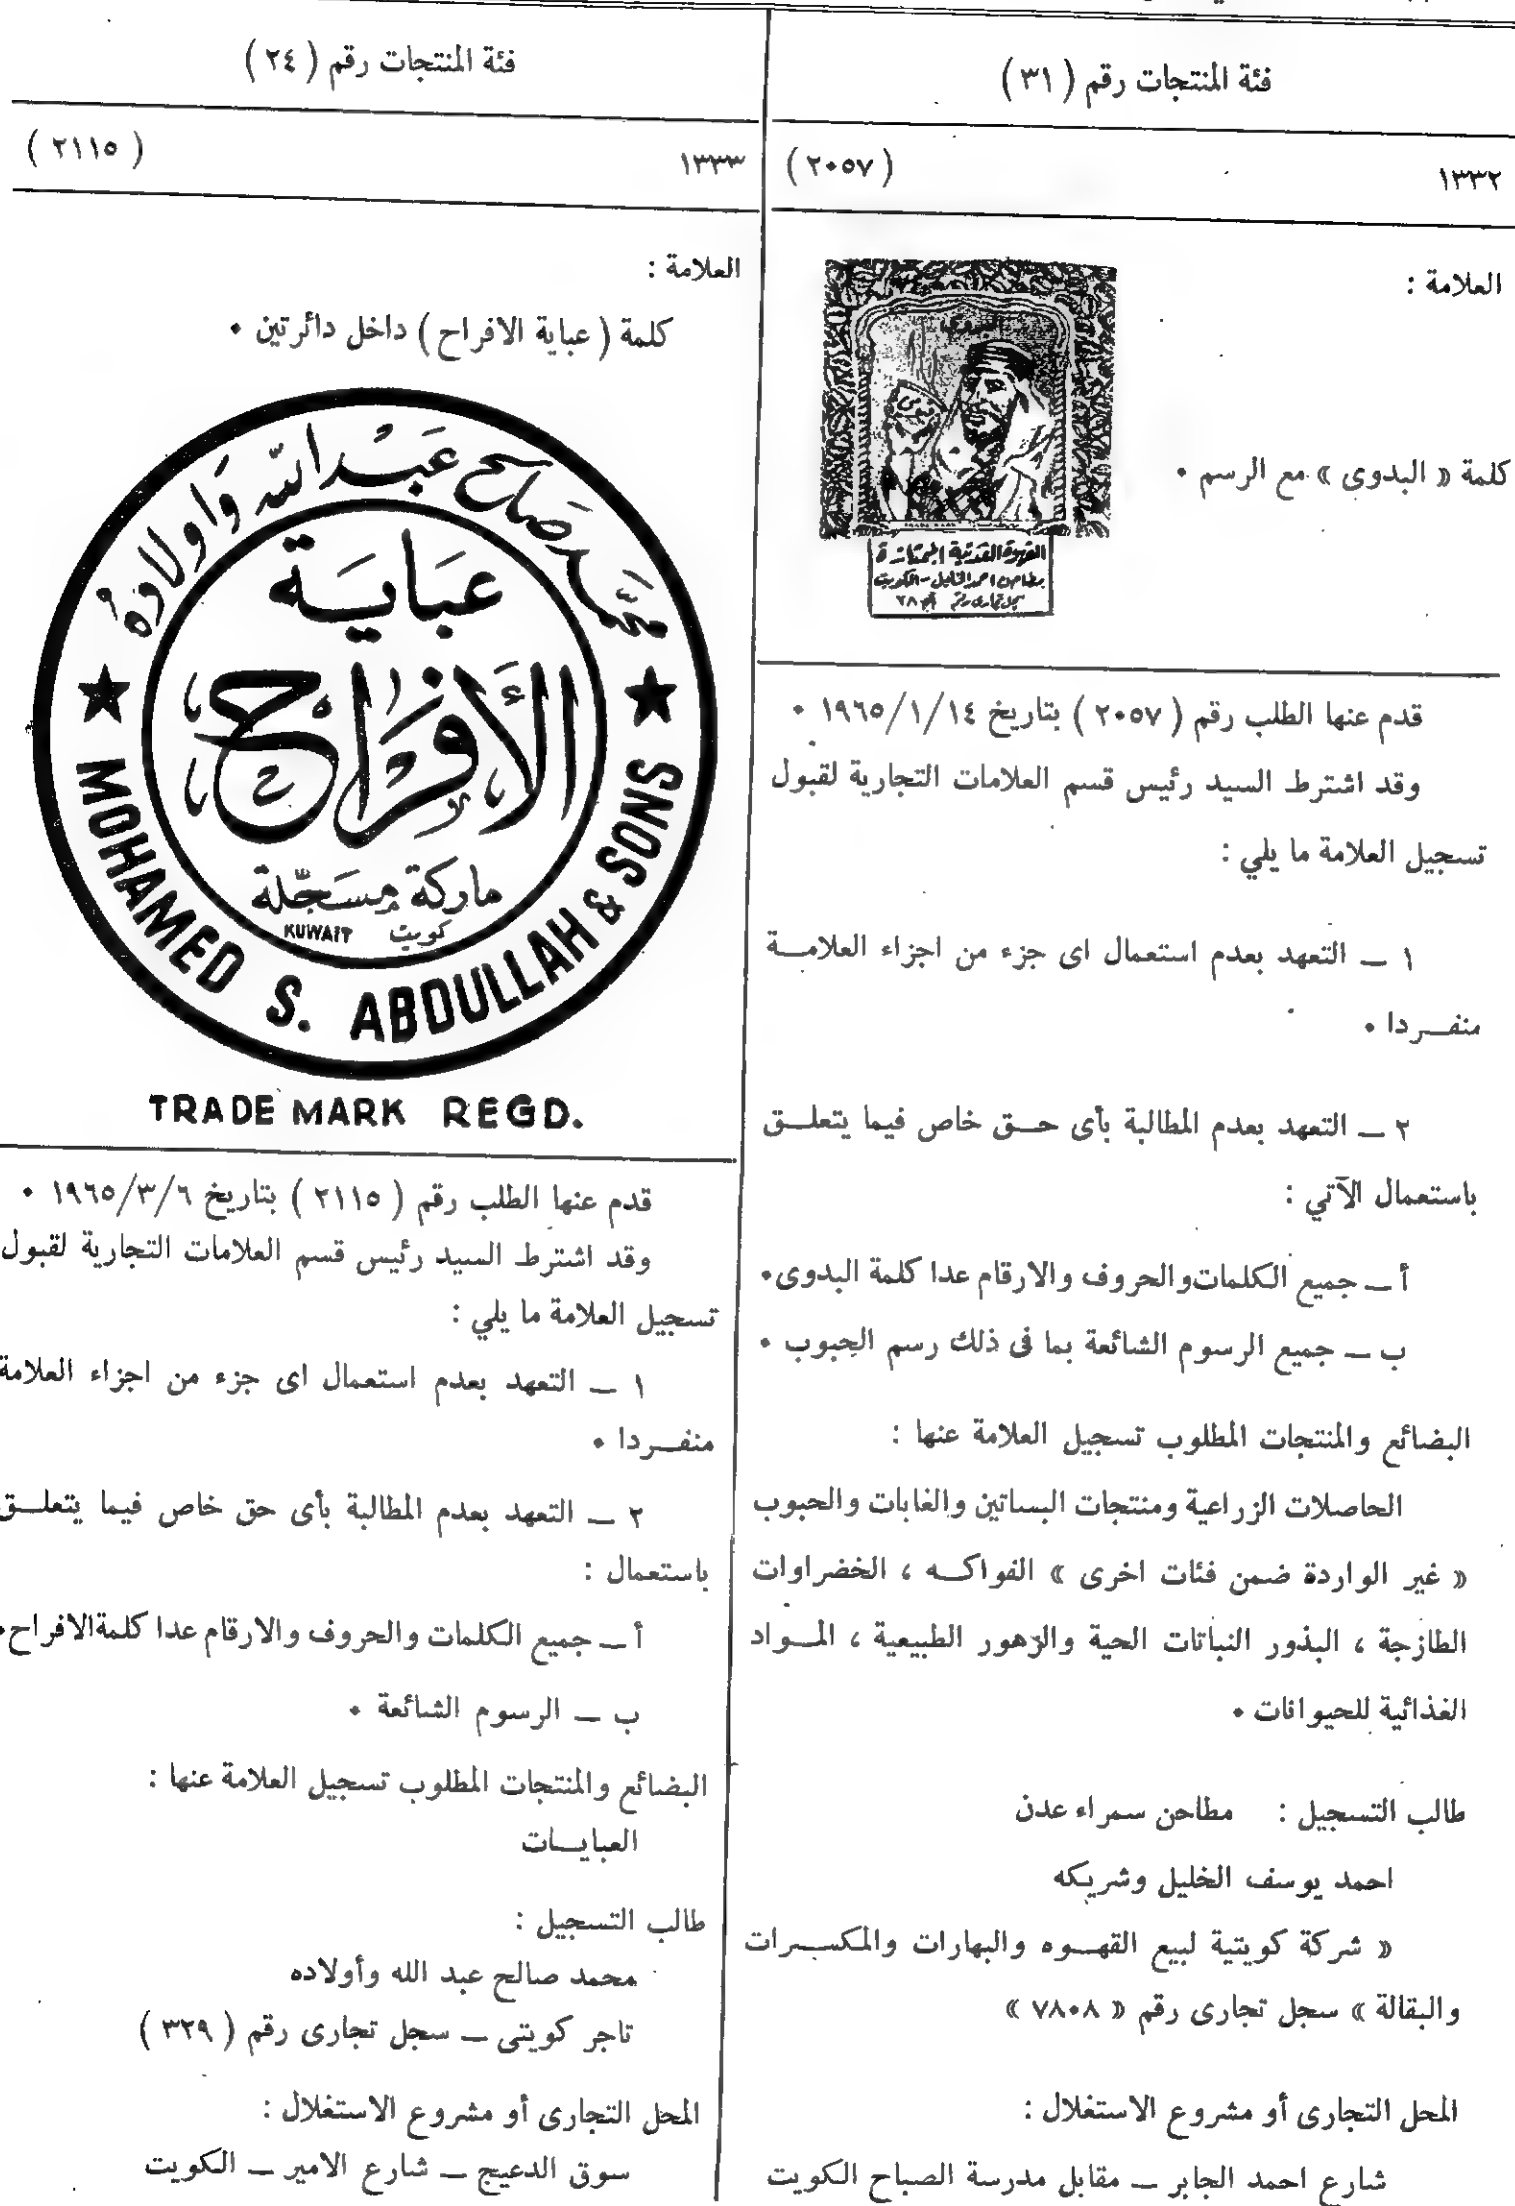 فئة المنتجات رقم ( ٣١ )
١٣٣٢ ( ٢٠٥٧ )
العلامة :
كلمة « البدوى » مع الرسم .
البدوي
القهوة العدنية الممتازة
بمطاحن احمد الخليل - الكويت
سجل تجارى رقم
قدم عنها الطلب رقم ( ٢٠٥٧ ) بتاريخ ١٩٦٥/١/١٤ .
وقد اشترط السيد رئيس قسم العلامات التجارية لقبول
تسجيل العلامة ما يلي :
١ ــ التعهد بعدم استعمال اى جزء من اجزاء العلامـــة
منفـــردا .
٢ ــ التعهد بعدم المطالبة بأى حـــق خاص فيما يتعلـــق
باستعمال الآتي :
أ ــ جميع الكلمات والحروف والارقام عدا كلمة البدوى .
ب ــ جميع الرسوم الشائعة بما فى ذلك رسم الحبوب .
البضائع والمنتجات المطلوب تسجيل العلامة عنها :
الحاصلات الزراعية ومنتجات البساتين والغابات والحبوب
« غير الواردة ضمن فئات اخرى » الفواكـــه ، الخضراوات
الطازجة ، البذور النباتات الحية والزهور الطبيعية ، المـــواد
الغذائية للحيوانات .
طالب التسجيل : مطاحن سمراء عدن
احمد يوسف الخليل وشريكه
« شركة كويتية لبيع القهـــوه والبهارات والمكســـرات
والبقالة » سجل تجارى رقم « ٧٨٠٨ »
المحل التجارى أو مشروع الاستغلال :
شارع احمد الجابر ــ مقابل مدرسة الصباح الكويت
فئة المنتجات رقم ( ٢٤ )
١٣٣٣ ( ٢١١٥ )
العلامة :
كلمة ( عباية الافراح ) داخل دائرتين .
محمد صالح عبد الله واولاده
عباية
الأفراح
ماركة مسجلة
كويت KUWAIT
MOHAMED S. ABDULLAH & SONS
TRADE MARK REGD.
قدم عنها الطلب رقم ( ٢١١٥ ) بتاريخ ١٩٦٥/٣/٦ .
وقد اشترط السيد رئيس قسم العلامات التجارية لقبول
تسجيل العلامة ما يلي :
١ ــ التعهد بعدم استعمال اى جزء من اجزاء العلامة
منفـــردا .
٢ ــ التعهد بعدم المطالبة بأى حق خاص فيما يتعلـــق
باستعمال :
أ ــ جميع الكلمات والحروف والارقام عدا كلمة الافراح .
ب ــ الرسوم الشائعة .
البضائع والمنتجات المطلوب تسجيل العلامة عنها :
العبايـــات
طالب التسجيل :
محمد صالح عبد الله وأولاده
تاجر كويتى ــ سجل تجارى رقم ( ٣٢٩ )
المحل التجارى أو مشروع الاستغلال :
سوق الدعيج ــ شارع الامير ــ الكويت